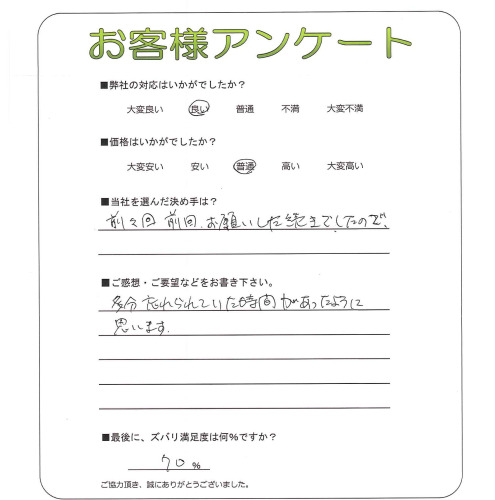 お客様アンケート
■弊社の対応はいかがでしたか？
大変良い 良い 普通 不満 大変不満
■価格はいかがでしたか？
大変安い 安い 普通 高い 大変高い
■当社を選んだ決め手は？
前々回 前回、お願いした続きでしたので、
■ご感想・ご要望などをお書き下さい。
多分忘れられていた時間があったように
思います.
■最後に、ズバリ満足度は何%ですか？
70 %
ご協力頂き、誠にありがとうございました。